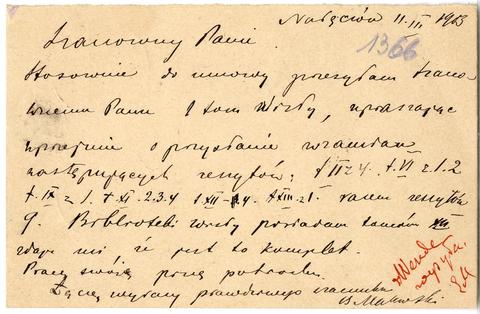 Nałęczów 11 III 1913
1366
Szanowny Panie.
Stosownie do umowy przesyłam Szano
wnemu Panu 1 tom Wisły, upraszając
uprzejmie o przysłanie wzamian
następujących zeszytów: t II z 4. t. VI z 1. 2
t. IX z 1. t XI. 2. 3. 4 t XII - 4 t XIII z 1. razem zeszytów
9. Wisły posiadam tomów XII
zdaje mi się jest to komplet.
Pracę swoją piszę
Łączę wyrazy prawdziwego szacunku